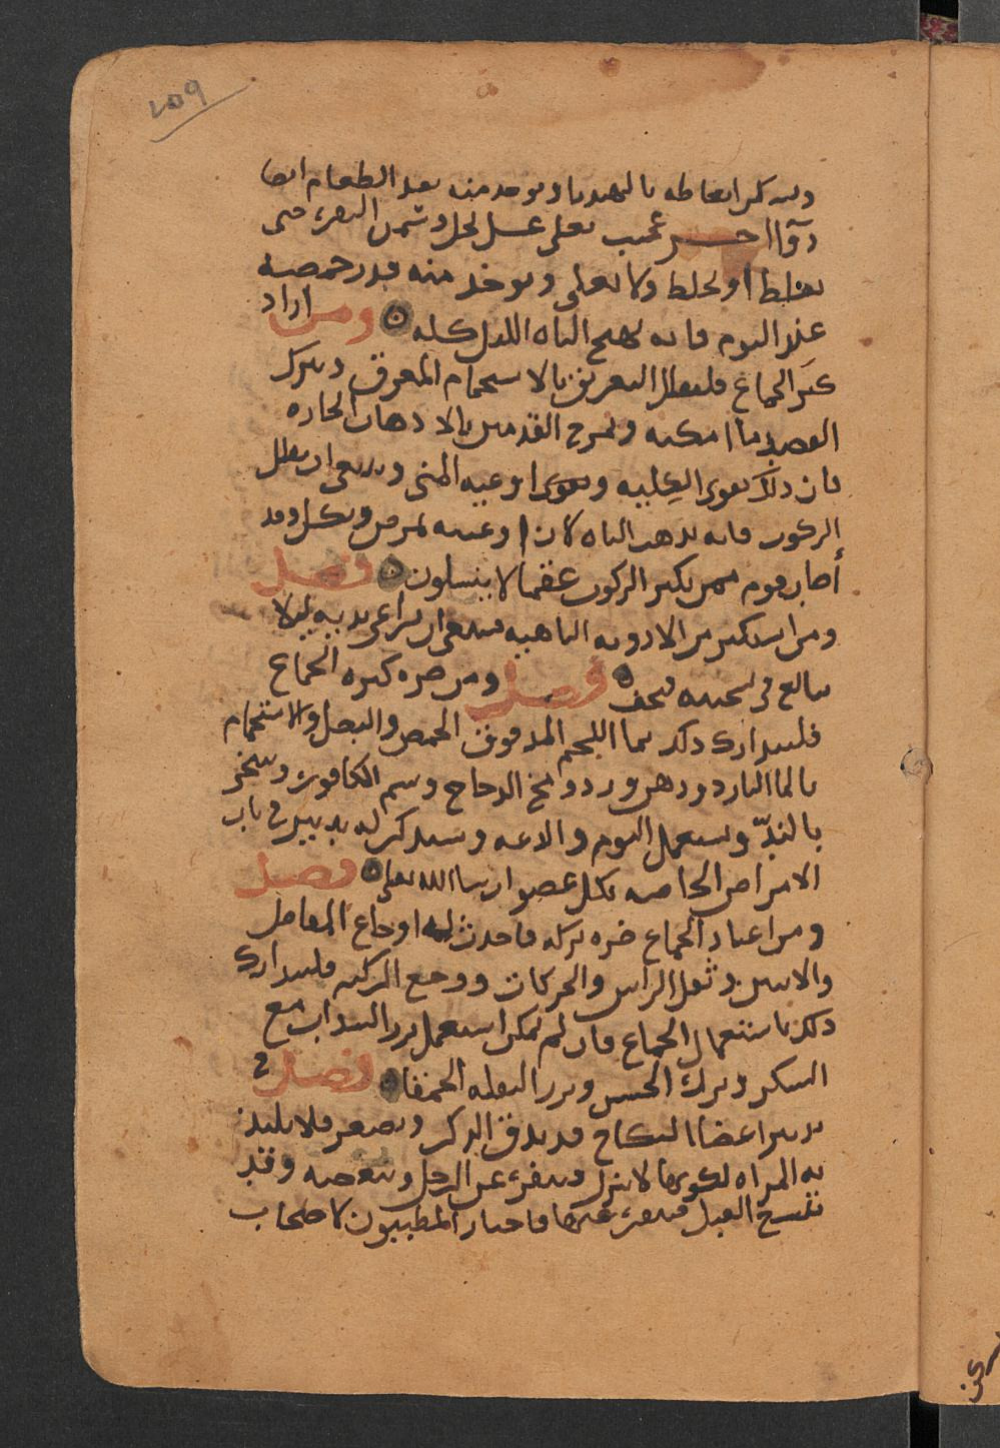 ٢٥٩
بعد الطعام ايضا
دوا اخر عجيب يغلى عسل نحل وسمن البقر حتى
يغلظ او يخلط ولا يغلى ويوخذ منه قدر حمصه
عند النوم فانه يهيج الباه الليل كله ومن اراد
كثر الجماع فليقلل التعريق بالاستحمام المعرق ويترك
الفصد ما امكنه ويمرخ القدمين بالادهان الحاره
فان ذلك يقوى الكليه ويقوى اوعيه المنى وينبغى ان يقلل
الركوب فانه يذهب الباه لان اوعيته تمرض وتكل وقد
أصاب قوم ممن يكثر الركوب عقما لا ينسلون فصل
ومن استكثر من الادويه الباهيه فينبغى ان يراعى بدنه ليلا
يبالغ فى تسخينه فيجف فصل ومن ضره كثره الجماع
فليتدارك ذلك بما اللحم المدقوق الحمص والبصل والاستحمام
بالما البارد ودهن ورد ومخ الدجاج وشم الكافور وتبخر
بالندّ ويستعمل النوم والدعه وسنذكر له تدبير فى باب
الامراض الخاصه بكل عضو ان شا الله تعلى فصل
ومن اعتاد الجماع ضره تركه فاحدث له اوجاع المفاصل
والانثيين وثقل الراس والحركات ووجع الركبه فليتدارك
ذلك باستعمال الجماع فان لم يمكن استعمل بزر السداب مع
السكر وبزر الخس وبزر البقله الحمقا فصل فى
تدبير اعضا النكاح قد يدق الذكر ويصغر فلا يلتذ
به المراه لكونها لا تنزل وتنفر عن الرجل وتبغضه وقد
يتسع القبل فينفر عنها فاحتار المطببون لاصحاب